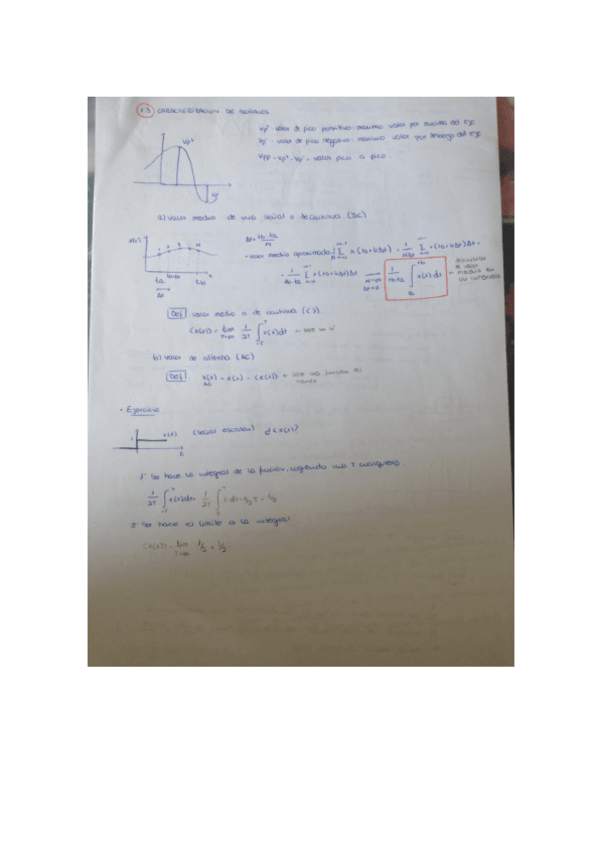 1.3 CARACTERIZACIÓN DE SEÑALES
Vp⁺ valor de pico positivo: máximo valor por encima del eje
Vp⁻ valor de pico negativo: máximo valor por debajo del eje
Vpp = Vp⁺ - Vp⁻ = valor pico a pico
Vp⁺
Vp⁻
a) Valor medio de una señal o de continua (DC)
x(t)
ta
tb
Δt
Δt = (tb - ta)/N
• Valor medio aproximado: 1/N Σ x(ta+kΔt) = 1/(NΔt) Σ x(ta+kΔt)Δt =
= 1/(tb-ta) Σ x(ta+kΔt)Δt
N→∞
Δt→0
1/(tb-ta) ∫ x(t)dt
definición de valor medio en un intervalo
Def Valor medio o de continua (< >)
<x(t)> = lim T→∞ 1/2T ∫ x(t)dt → sale un nº
b) Valor de alterna (AC)
Def x(t) AC = x(t) - <x(t)> → sale una función del tiempo
• Ejercicio
1
x(t)
t
(señal escalón) ¿<x(t)>?
1º Se hace la integral de la función, cogiendo una T cualquiera.
1/2T ∫ x(t)dt = 1/2T ∫ 1·dt = 1/2T · T = 1/2
2º Se hace el límite a la integral
<x(t)> = lim T→∞ 1/2 = 1/2